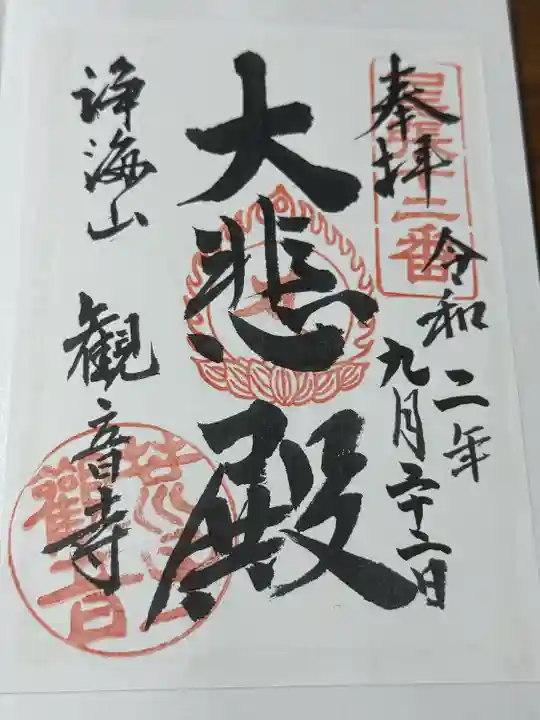 奉拝
尾張十二番
令和二年
九月二十二日
大悲殿
浄海山
観音寺
観音